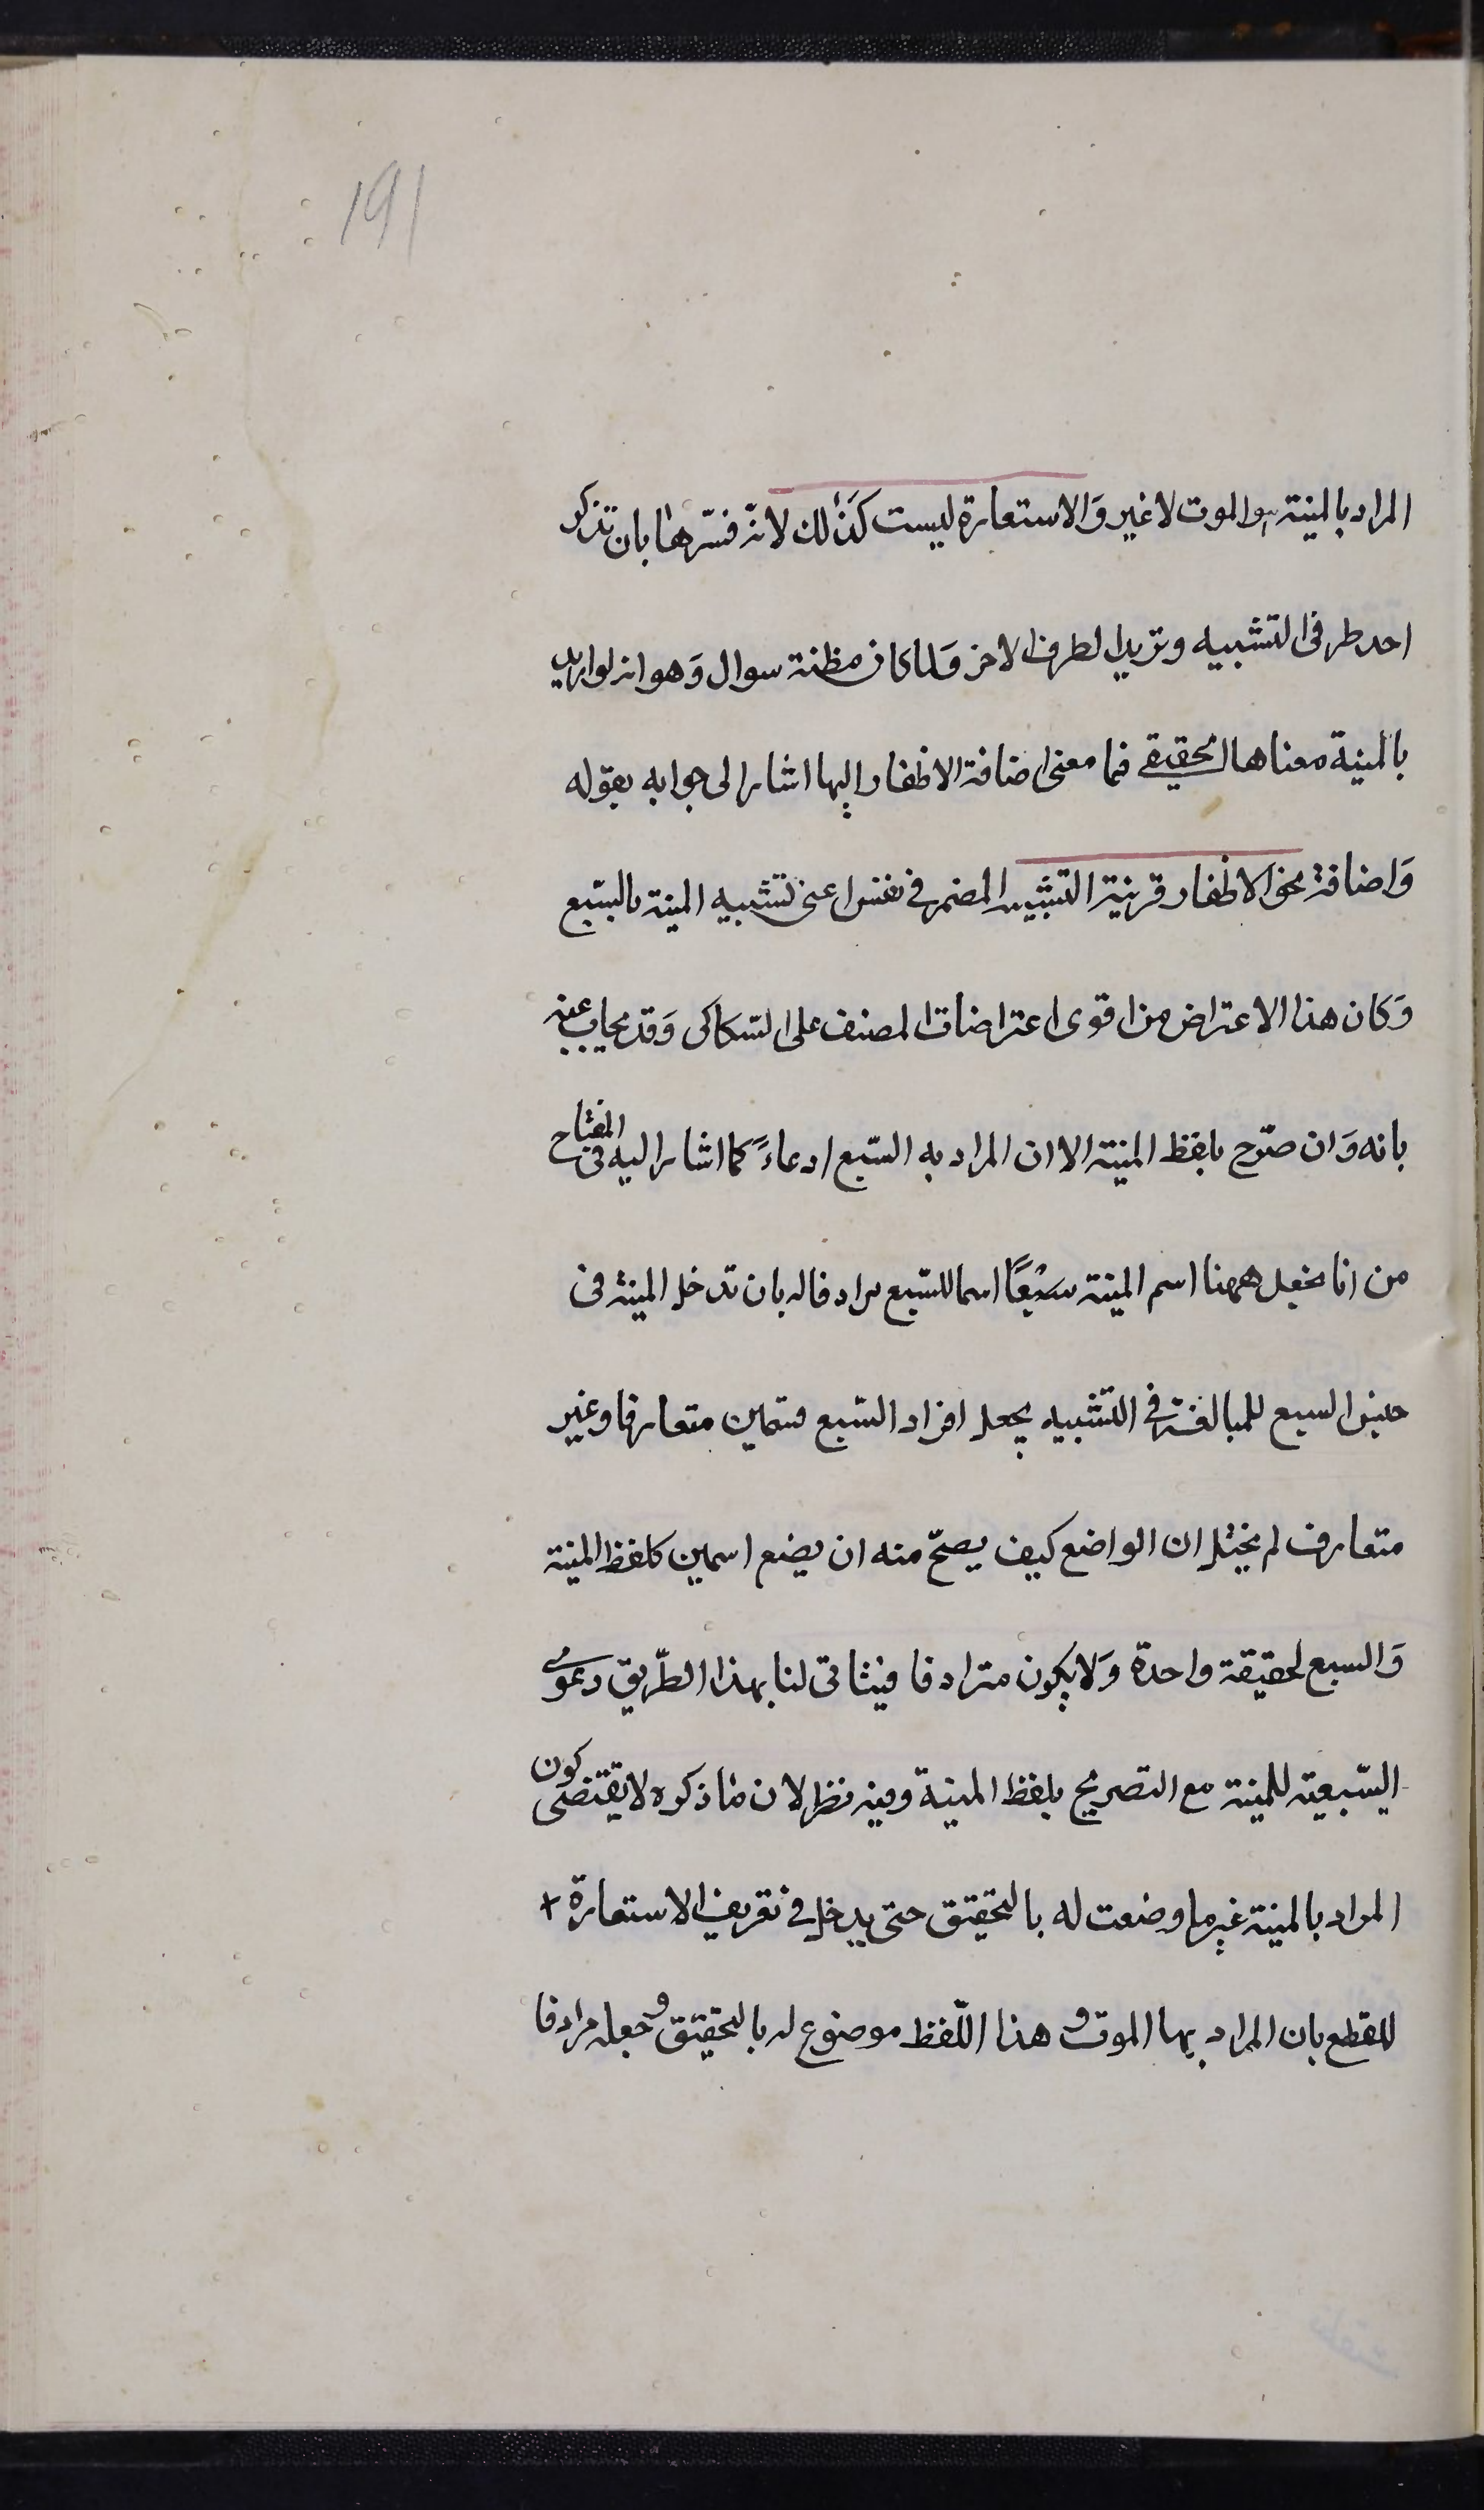 191
المراد بالمنية هو الموت لا غير وَالاستعارة ليست كذٰلك لانّه فسّرها بان تذكر
احد طرفى التشبيه وتريد الطرف الاخر وَلما كان مظنة سوال وَهو انه لو اريد
بالمنية معناها الحقيقے فما معنى اضافة الاظفار اليها اشار الى جوابه بقوله
وَاضافة نحو الاظفار قرينة التشبيه المضمر فى نفس اعنى تشبيه المنية بالسّبع
وَكان هذا الاعتراض من اقوى اعتراضات المصنف على السّكاكى وَقد يجاب عنه
بانه وَان صرّح بلفظ المنية الا ان المراد به السّبع ادعاءً كما اشار اليه فى المفتاح
من انا نجعل ههنا اسم المنية سَبُعًا اسما للسّبع مرادفا له بان تدخل المنية فى
جنس السبع للمبالغة فى التشبيه بجعل افراد السّبع قسمين متعارفا وغير
متعارف لم يخيّل ان الواضع كيف يصحّ منه ان يضع اسمين كلفظ المنية
وَالسبع لحقيقة واحدة وَلا يكون مترادفا فيتاتى لنا بهذا الطّريق دعوى
السّبعية للمنية مع التصريح بلفظ المنية وفيه نظر لان ما ذكره لا يقتضى كون
المراد بالمنية غير ما وضعت له بالتحقيق حتى يدخل فى تعريف الاستعارة
للقطع بان المراد بها الموت و هذا اللّفظ موضوع له بالتحقيق و جعله مرادفا